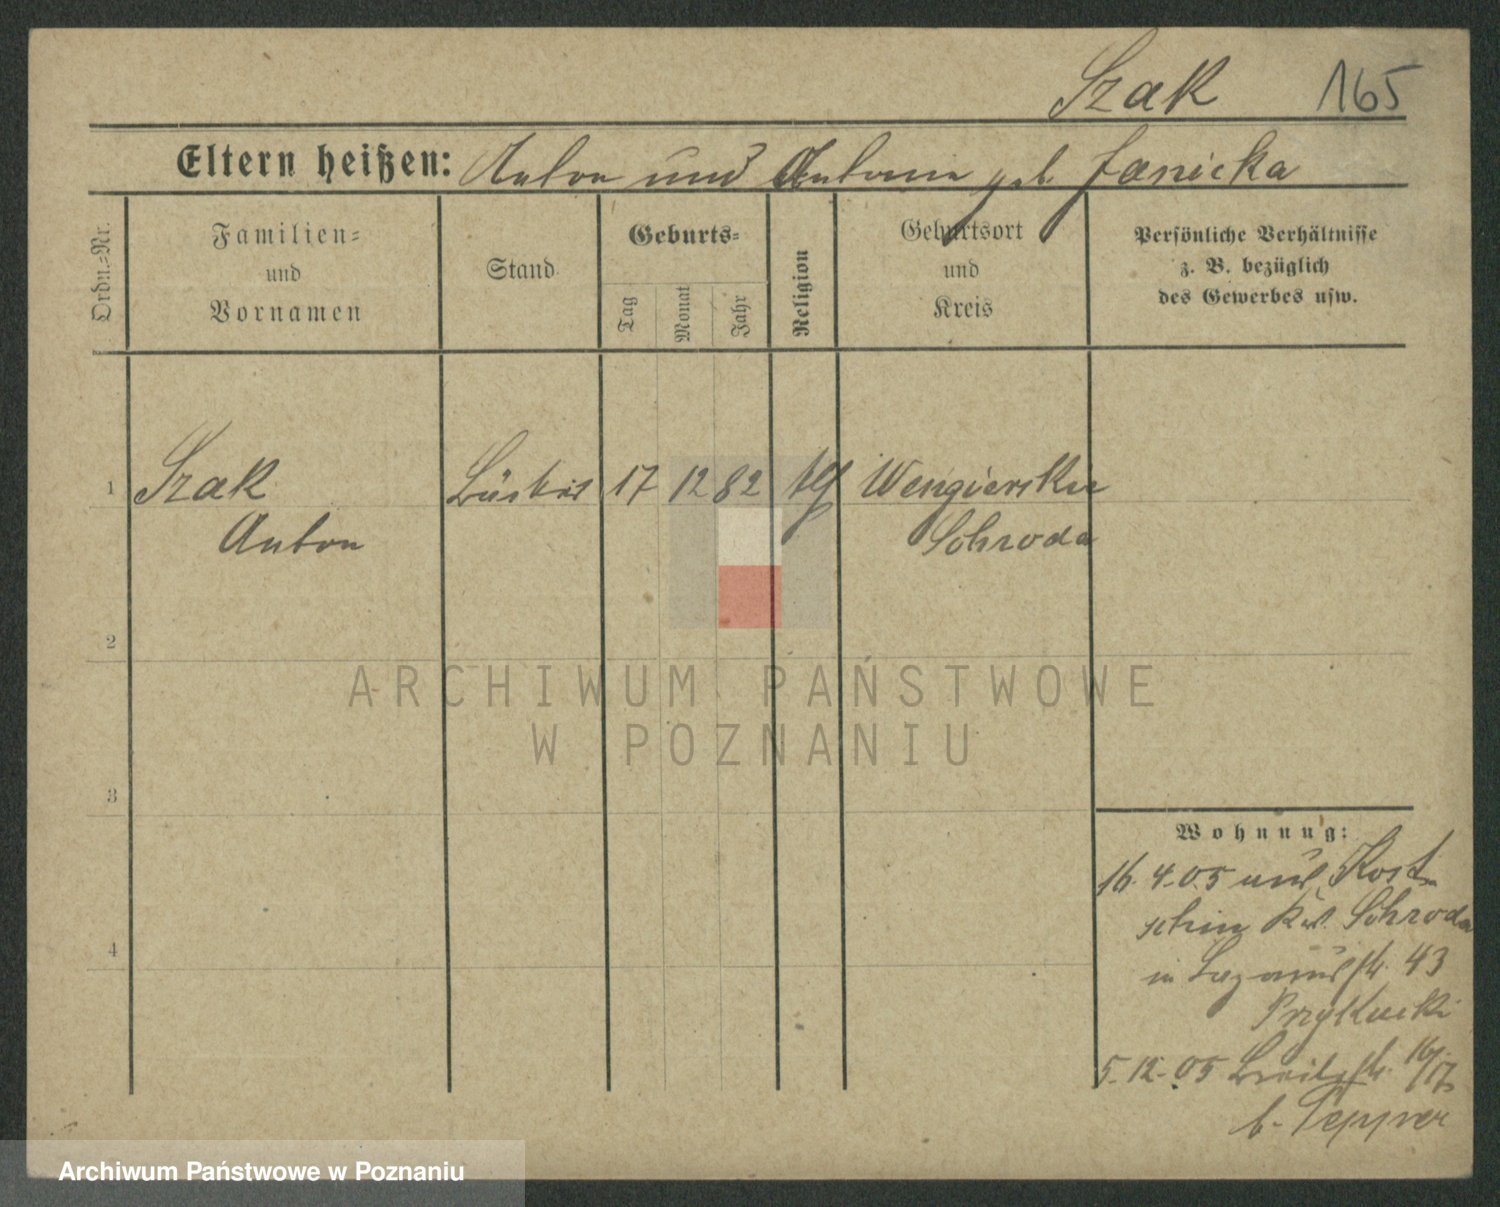 Szak 165
Eltern heißen: Anton und Antonie geb. Janicka
Ordn.-Nr.
Familien-
und
Vornamen
Stand
Geburts-
Tag
Monat
Jahr
Religion
Geburtsort
und
Kreis
Persönliche Verhältnisse
z. B. bezüglich
des Gewerbes usw.
1 Szak 17 12 82 Wengierskie
Anton Schroda
2
3
4
Wohnung:
16.4.05 aus Kost-
schin Krs. Schroda
in Lazarusstr. 43
Przykucki
5.12.05 Breitestr. 16/17
b.
ARCHIWUM PAŃSTWOWE
W POZNANIU
Archiwum Państwowe w Poznaniu